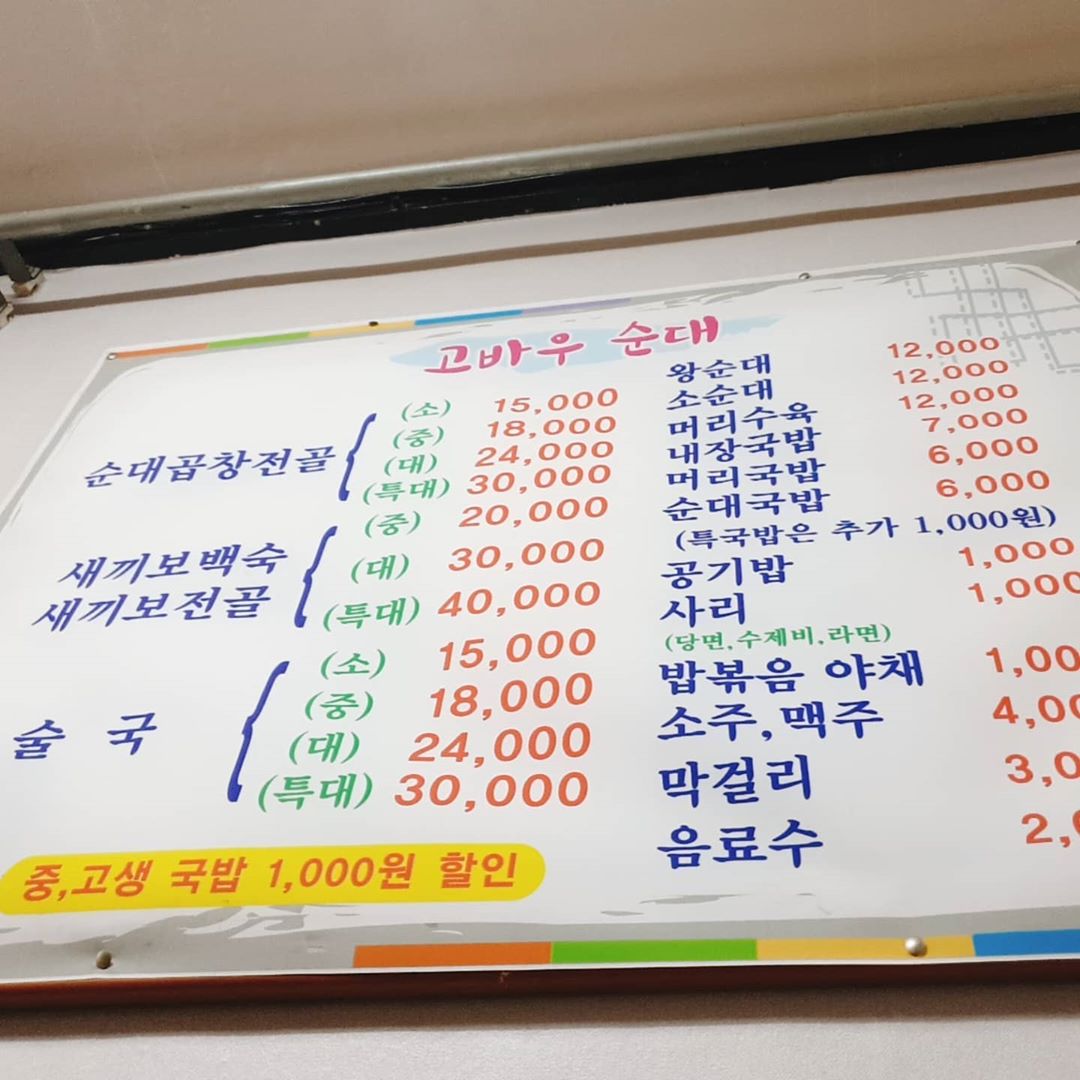 고바우 순대
순대곱창전골
(소) 15,000
(중) 18,000
(대) 24,000
(특대) 30,000
새끼보백숙
새끼보전골
(중) 20,000
(대) 30,000
(특대) 40,000
술 국
(소) 15,000
(중) 18,000
(대) 24,000
(특대) 30,000
중,고생 국밥 1,000원 할인
왕순대 12,000
소순대 12,000
머리수육 12,000
내장국밥 7,000
머리국밥 6,000
순대국밥 6,000
(특국밥은 추가 1,000원)
공기밥 1,000
사리 1,000
(당면,수제비,라면)
밥볶음 야채
소주,맥주
막걸리
음료수